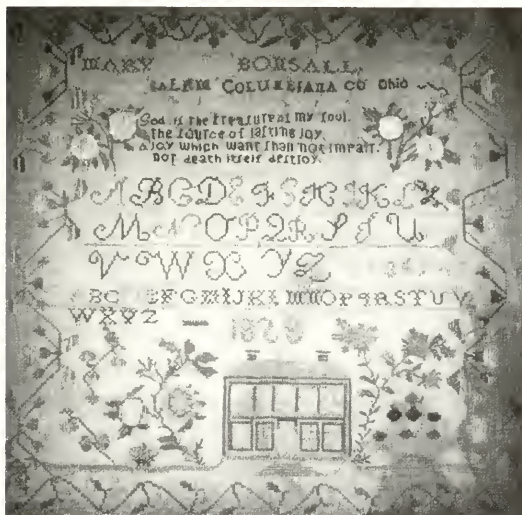 MARY BONSALL
SALEM COLUMBIANA CO Ohio
God is the treasure of my soul
the source of lasting joy.
a joy which want shall not impair
nor death itself destroy.
A B C D E F G H I K L
M N O P Q R S T U
V W X Y Z
ABC EFGHIJKLMNOPQRSTUV
WXYZ